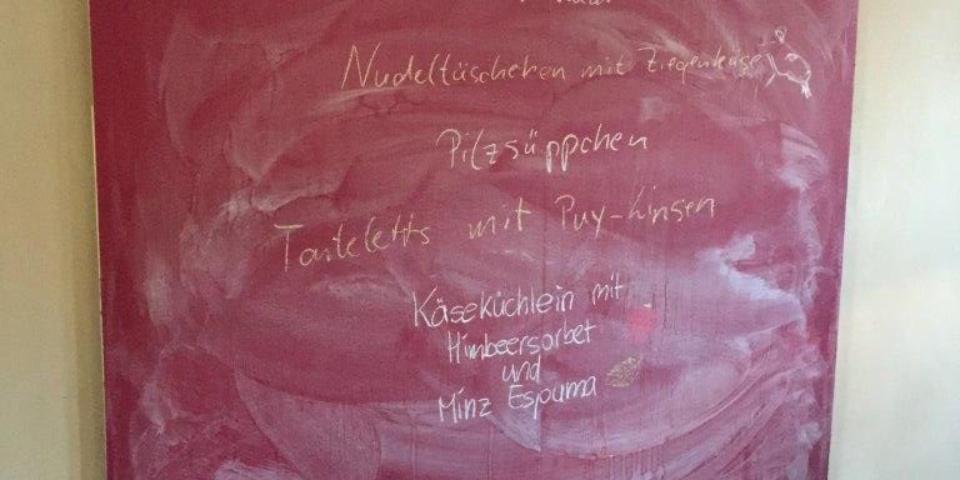 Nudeltäschchen mit Ziegenkäse
Pilzsüppchen
Tarteletts mit Puy-Linsen
Käseküchlein mit
Himbeersorbet
und
Minz Espuma